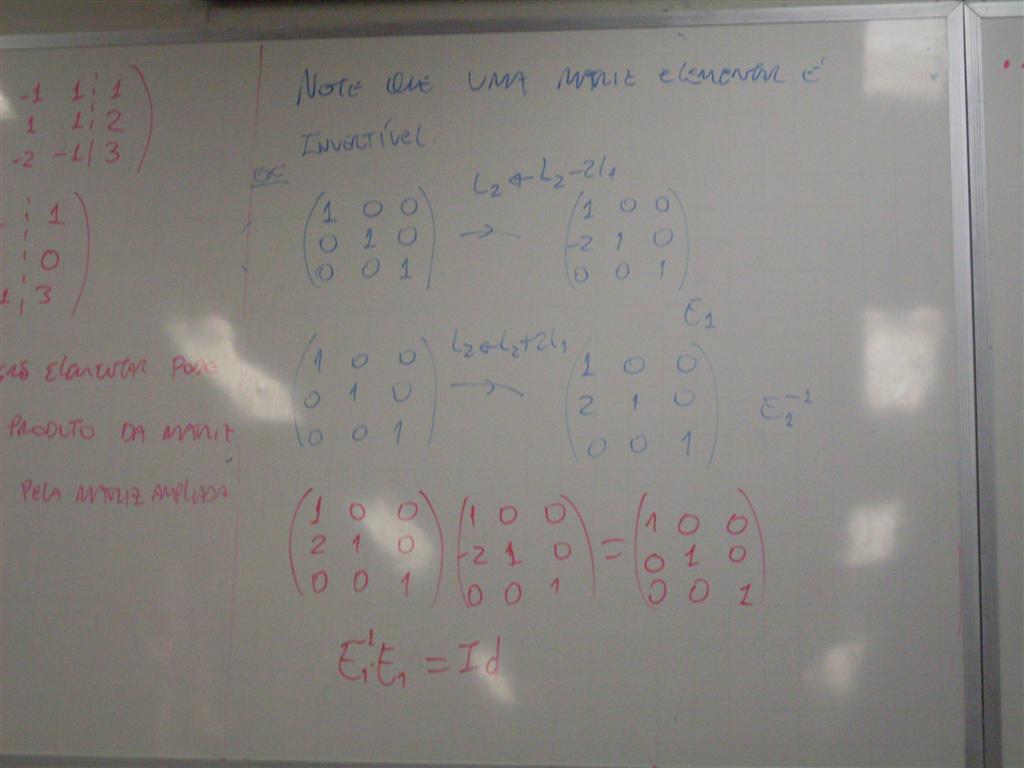 -1 1 | 1
1 1 | 2
-2 -1 | 3
| 1
| 0
1 | 3
ELEMENTAR PODE
PRODUTO DA MATRIZ
PELA MATRIZ AMPLIADA
NOTE QUE UMA MATRIZ ELEMENTAR É
INVERTÍVEL.
ex:
L₂ ← L₂ - 2L₁
(1 0 0) → (1 0 0)
(0 1 0) (-2 1 0)
(0 0 1) (0 0 1)
E₁
L₂ ← L₂ + 2L₁
(1 0 0) → (1 0 0)
(0 1 0) (2 1 0) E₁⁻¹
(0 0 1) (0 0 1)
(1 0 0) (1 0 0) = (1 0 0)
(2 1 0) (-2 1 0) (0 1 0)
(0 0 1) (0 0 1) (0 0 1)
E₁⁻¹.E₁ = Id